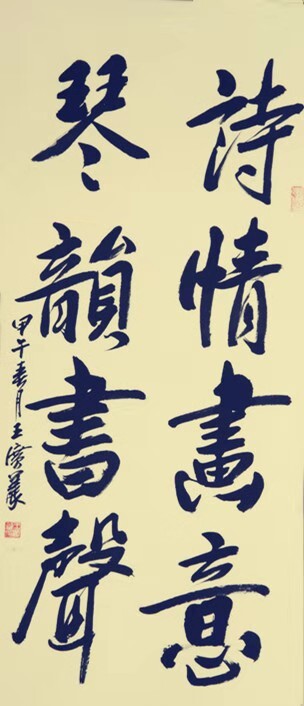 詩情畫意
琴韻書聲
甲午春月王寳義